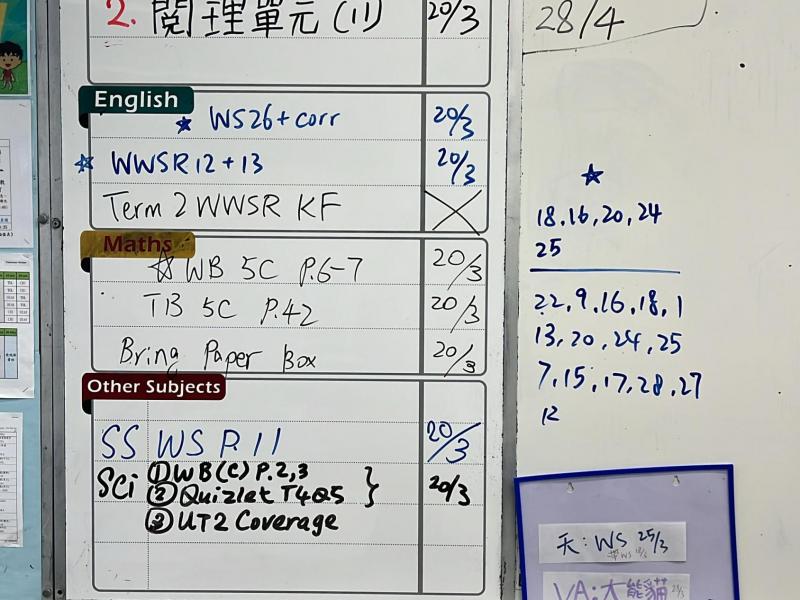 2. 閱理單元(11) 20/3
28/4
English
☆ WS26+corr 20/3
☆ WWSR12+13 20/3
Term 2 WWSR KF
Maths
☆ WB 5C P.6-7 20/3
TB 5C P.42 20/3
Bring Paper Box 20/3
Other Subjects
SS WS P.11 20/3
Sci ①WB(C) P.2,3
②Quizlet T4Q5 } 20/3
③UT2 Coverage
☆
18,16,20,24
25
22,9,16,18,1
13,20,24,25
7,15,17,28,27
12
天:WS 25/3
VA:大熊貓